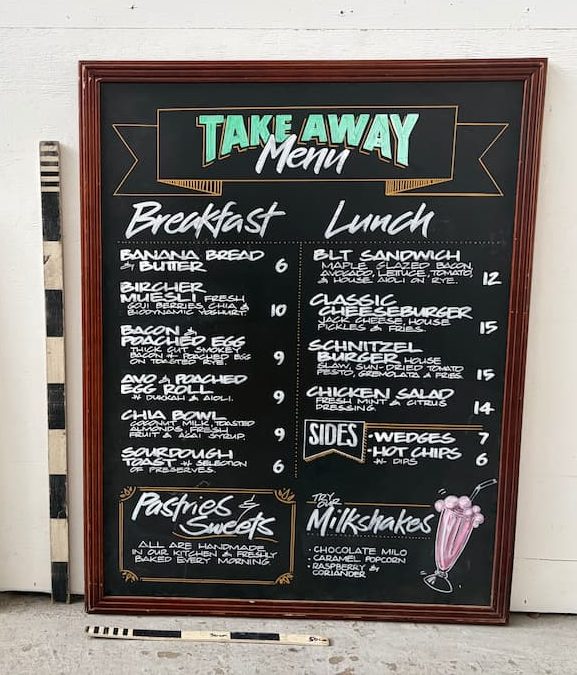 TAKE AWAY
Menu
Breakfast
BANANA BREAD
BUTTER 6
BIRCHER
MUESLI FRESH
GOJI BERRIES, CHIA &
BIODYNAMIC YOGHURT. 10
BACON &
POACHED EGG
THICK CUT SMOKEY
BACON W/ POACHED EGG
ON TOASTED RYE. 9
AVO & POACHED
EGG ROLL
W/ DUKKAH & AIOLI. 9
CHIA BOWL
COCONUT MILK, TOASTED
ALMONDS, FRESH
FRUIT & ACAI SYRUP. 9
SOURDOUGH
TOAST W/ SELECTION
OF PRESERVES. 6
Lunch
BLT SANDWICH
MAPLE GLAZED BACON,
AVOCADO, LETTUCE, TOMATO,
& HOUSE AIOLI ON RYE. 12
CLASSIC
CHEESEBURGER
JACK CHEESE, HOUSE
PICKLES & FRIES. 15
SCHNITZEL
BURGER HOUSE
SLAW, SUN-DRIED TOMATO
PESTO, GREMOLATA & FRIES. 15
CHICKEN SALAD
FRESH MINT & CITRUS
DRESSING. 14
SIDES
• WEDGES 7
• HOT CHIPS
W/ DIPS 6
Pastries &
Sweets
ALL ARE HANDMADE
IN OUR KITCHEN & FRESHLY
BAKED EVERY MORNING.
TRY
OUR
Milkshakes
• CHOCOLATE MILO
• CARAMEL POPCORN
• RASPBERRY &
CORIANDER